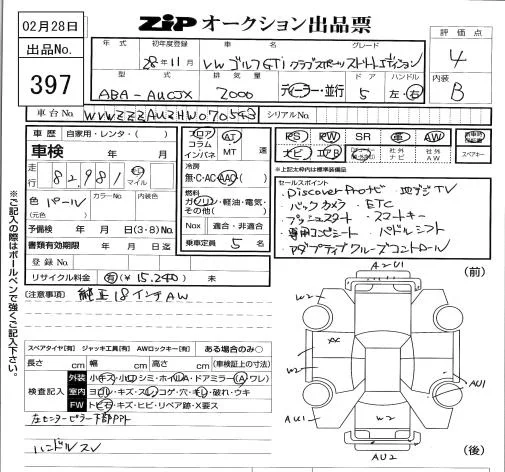 02月28日
出品No.
397
ZIP オークション出品票
年式 初年度登録 車名 グレード
28年11月 VW ゴルフGTi クラブスポーツストリートエディション
型式 排気量 ドア ハンドル
ABA-AUCJX 2000 ディーラー・並行 5 左・右
評価点
4
内装
B
車台No. WVWZZZAUZHW070543 シリアルNo.
車歴 自家用・レンタ・( )
車検 年 月
走行 82,981 キロ マイル
色 パール (元色) カラーNo. 内装色
予備検 年 月 日(3・8)No.
書類有効期限 年 月 日迄
登録No.
リサイクル料金 有(¥15.240) 未
フロア コラム インパネ AT・MT 速
冷房 無・C・AC・AAC
燃料
ガソリン・軽油・電気・その他( )
Nox 適合・非適合
乗車定員 5 名
PS PW SR 革 AW
ナビ エアB 社外ナビ 社外AW スペアキー
※上記太枠内は標準装備品
セールスポイント
・Discover Proナビ・地デジTV
・バックカメラ・ETC
・プッシュスタート・スマートキー
・専用コンビシート・パドルシフト
・アダプティブクルーズコントロール
[注意事項] 純正18インチAW
※ご記入の際はボールペンで強くご記入下さい。
スペアタイヤ[有] ジャッキ工具[有] AWロックキー[有] ある場合のみ○
長さ cm 幅 cm 高さ cm (車検証上の寸法)
検査記入
外装 小キズ・小凹・シミ・ホイルA・ドアミラー(A・ワレ)
室内 ヨゴレ・キズ・スレ・コゲ・穴・キレ・破れ・ウキ
FW トビ石・キズ・ヒビ・リペア跡・X要ス
左センターピラー下部
ハンドルスレ
(前)
A2U1
W2
W2
AU1
AU1
W2
AU2
(後)